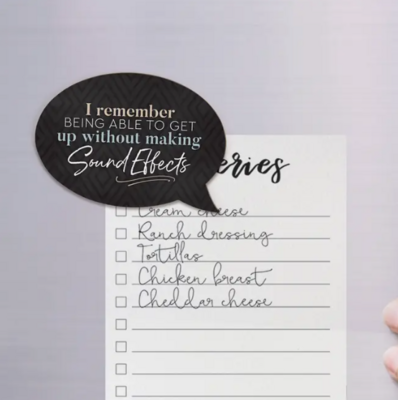 I remember
BEING ABLE TO GET
up without making
Sound Effects
eries
Cream cheese
Ranch dressing
Tortillas
Chicken breast
Cheddar cheese